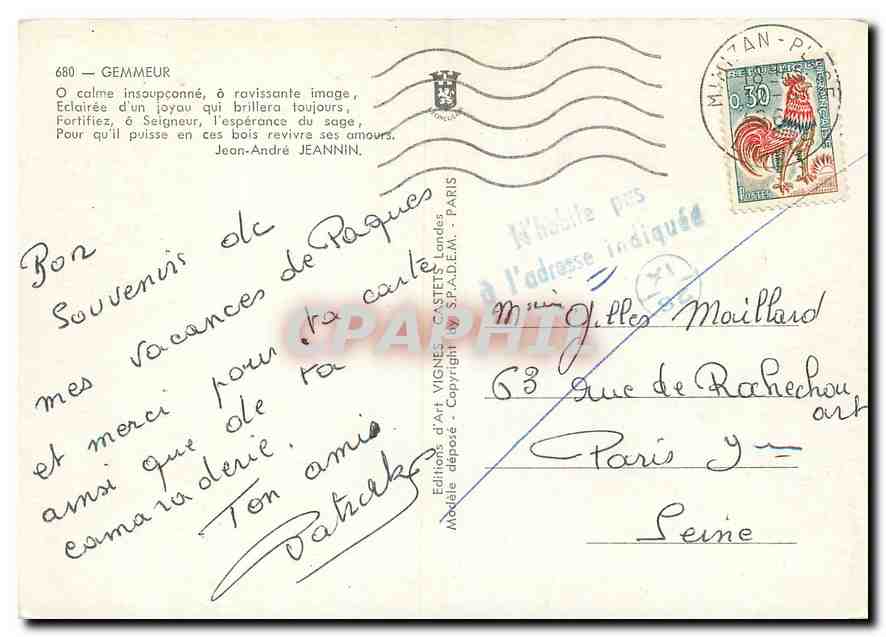 680 — GEMMEUR
O calme insoupçonné, ô ravissante image,
Eclairée d'un joyau qui brillera toujours,
Fortifiez, ô Seigneur, l'espérance du sage,
Pour qu'il puisse en ces bois revivre ses amours.
Jean-André JEANNIN.
Bon
Souvenir de
mes vacances de Paques
et merci pour ta carte
ainsi que de ta
camaraderie.
Ton ami
Patrick
Editions d'Art VIGNES, CASTETS Landes
Modèle déposé - Copyright by S.P.A.D.E.M. - PARIS
MIMIZAN - PLAGE
REPUBLIQUE FRANÇAISE
0,30
POSTES
N'habite pas
à l'adresse indiquée
IX
CPAPHIL
Gilles Maillard
63 rue de Rochechou
art
Paris 9
Seine